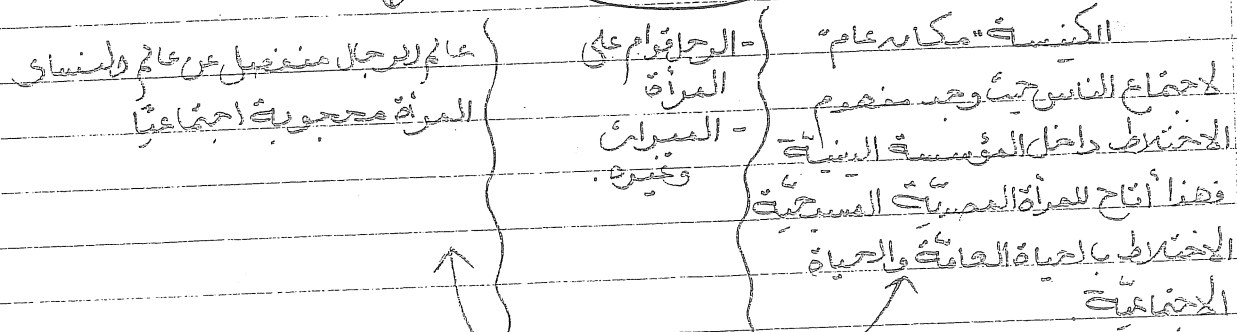 الكنيسة "مكان عام"
لاجتماع الناس حيث وجد مفهوم
الاختلاط داخل المؤسسة الدينية
فهذا أتاح للمرأة المصريّة المسيحيّة
الاختلاط بالحياة العامّة والحياة
الاجتماعيّة
- الرجل قوام على
المرأة
- الميراث
وغيره.
عالم الرجال منفصل عن عالم النساء
المرأة محجوبة اجتماعيًّا